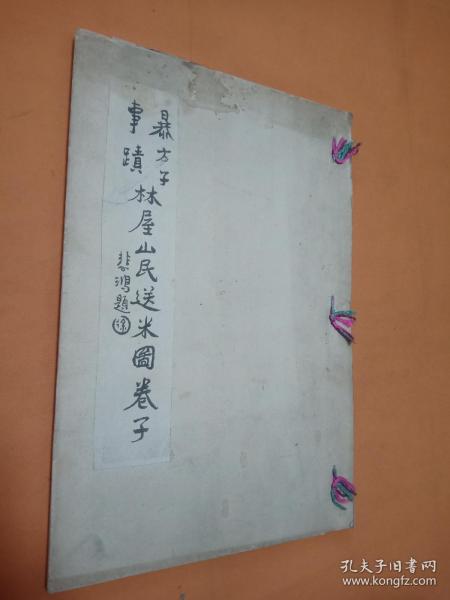 暴方子
事蹟
林屋山民送米圖卷子
悲鴻題
孔夫子旧书网
www.kongfz.com